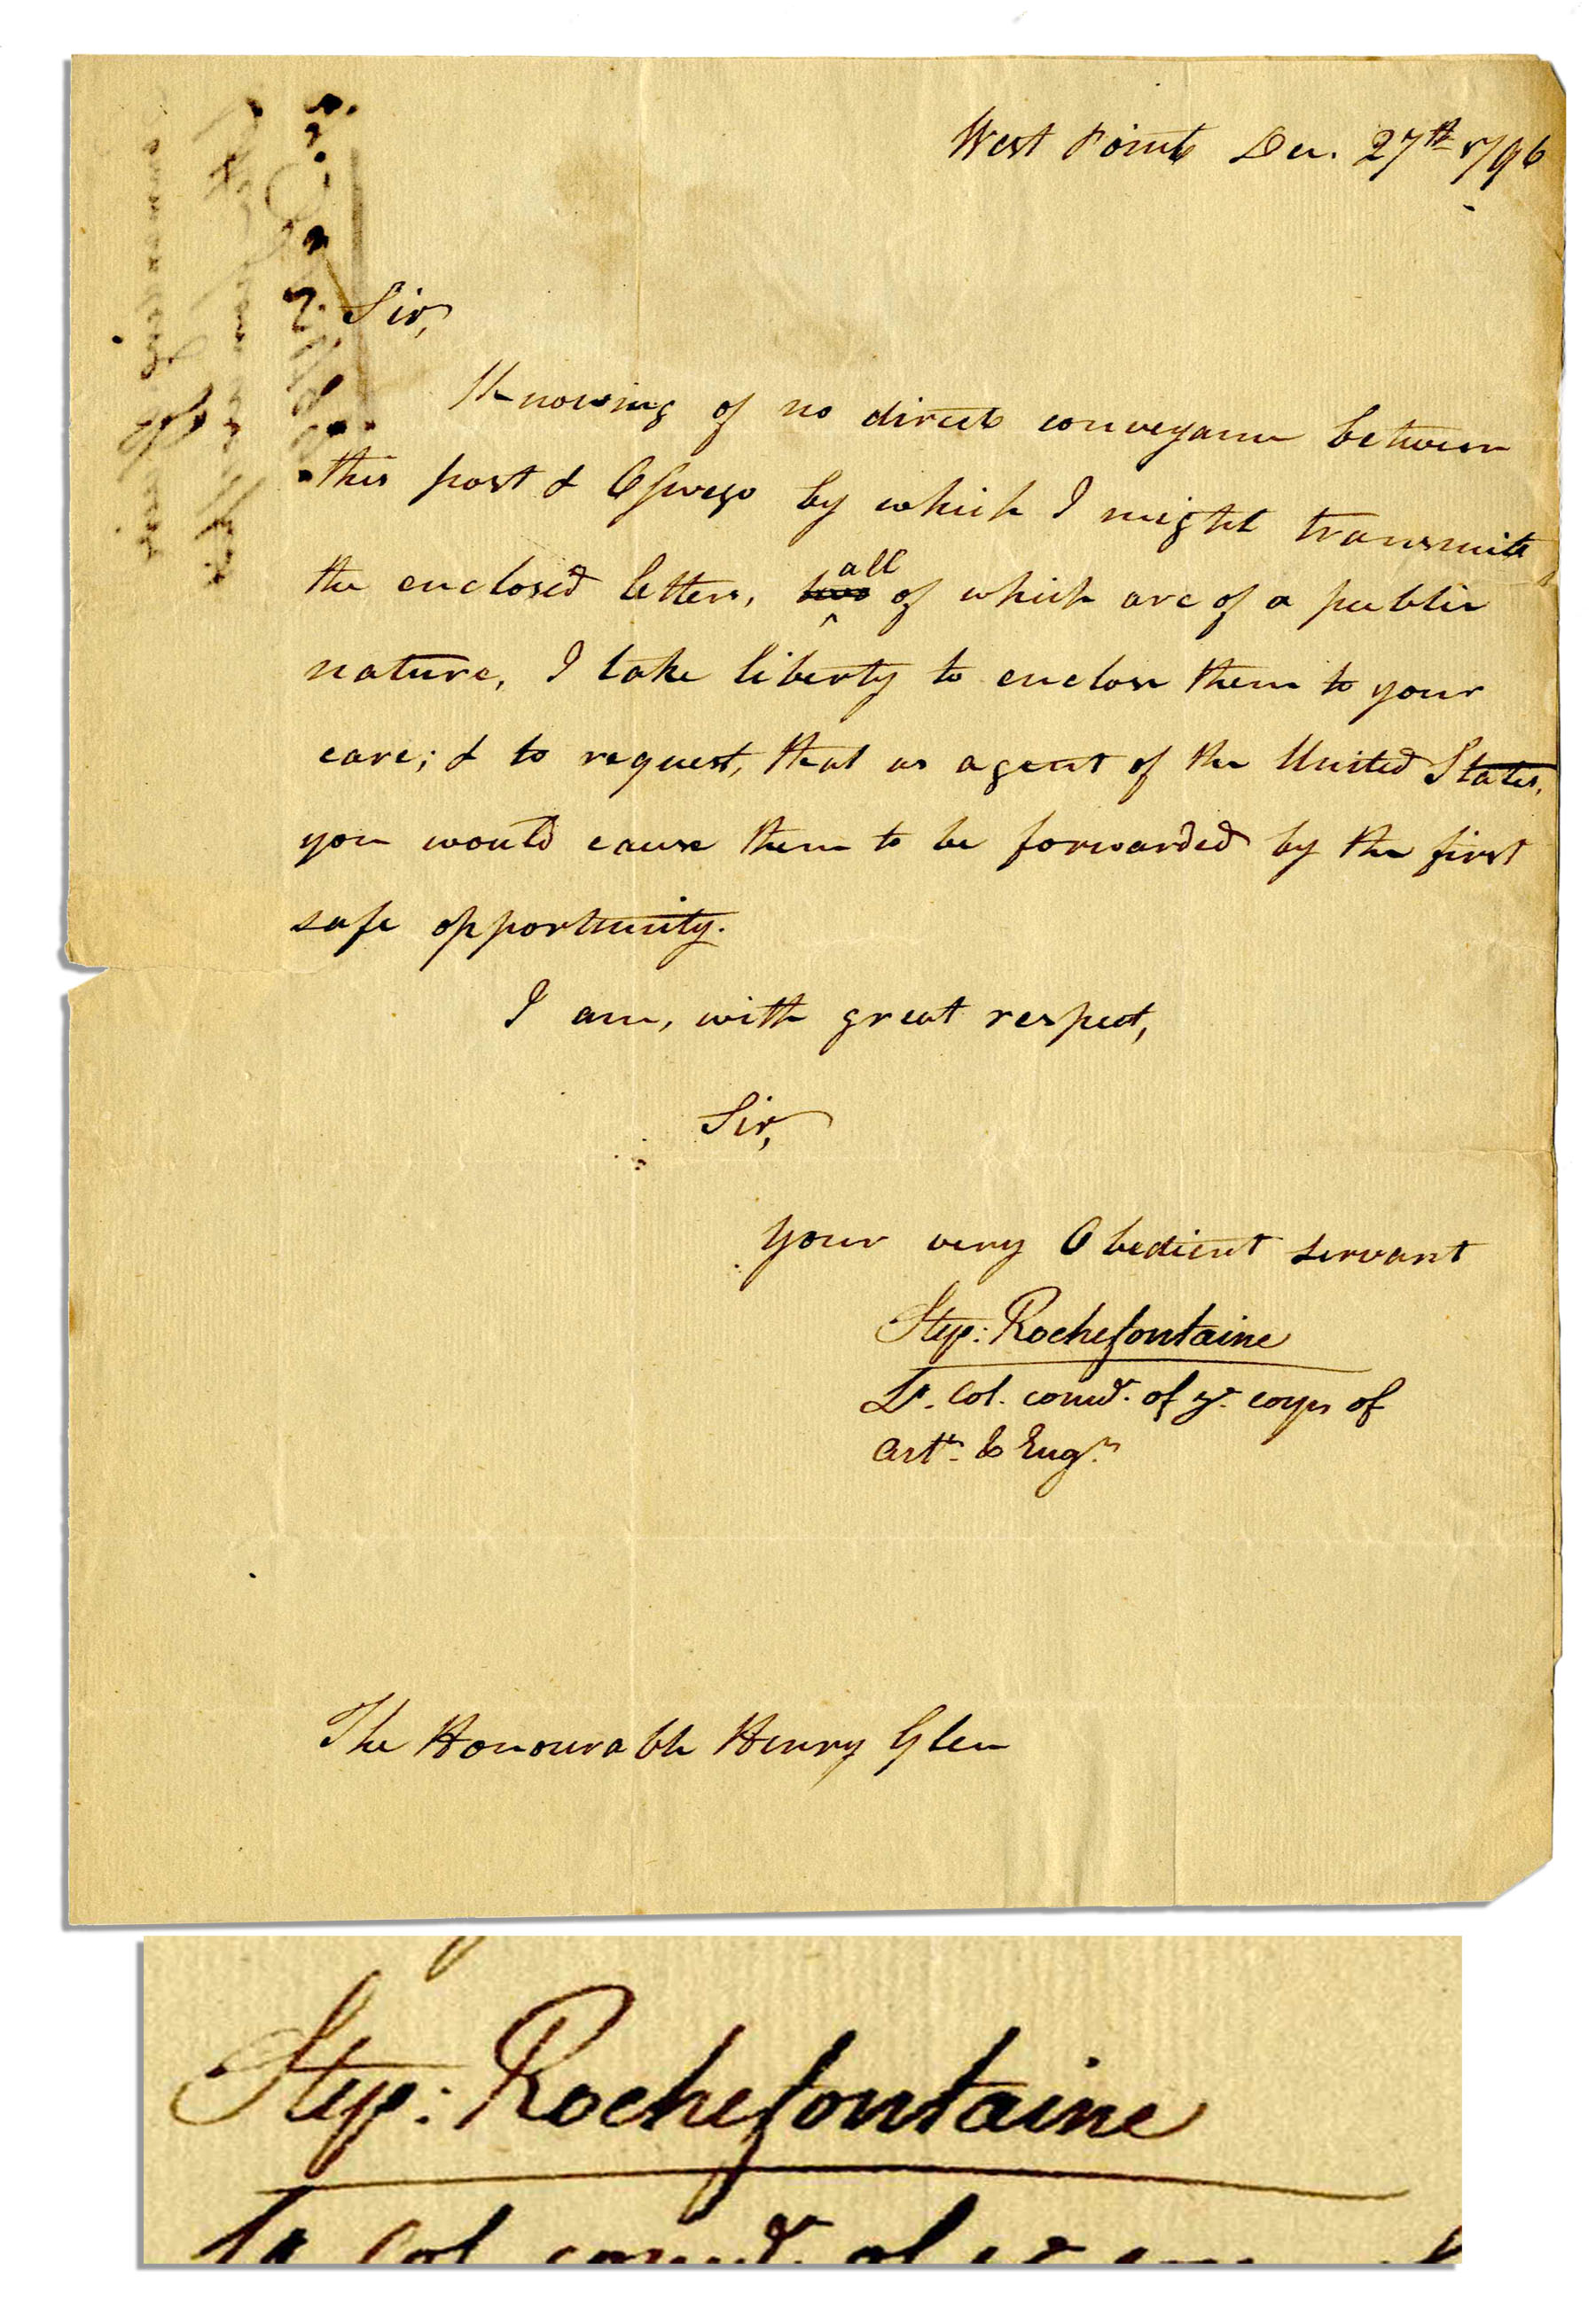 West Point Dec. 27th 1796
Sir,
Knowing of no direct conveyance between
this post & Oswego by which I might transmit
the enclosed letters, two all of which are of a public
nature, I take liberty to enclose them to your
care; & to request, that as agent of the United States,
you would cause them to be forwarded by the first
safe opportunity.
I am, with great respect,
Sir,
Your very Obedient servant
Step: Rochefontaine
Lt. Col. comdt. of ye. corps of
Arts. & Engrs.
The Honourable Henry Glen
Step: Rochefontaine
Lt Col comdt. of ye